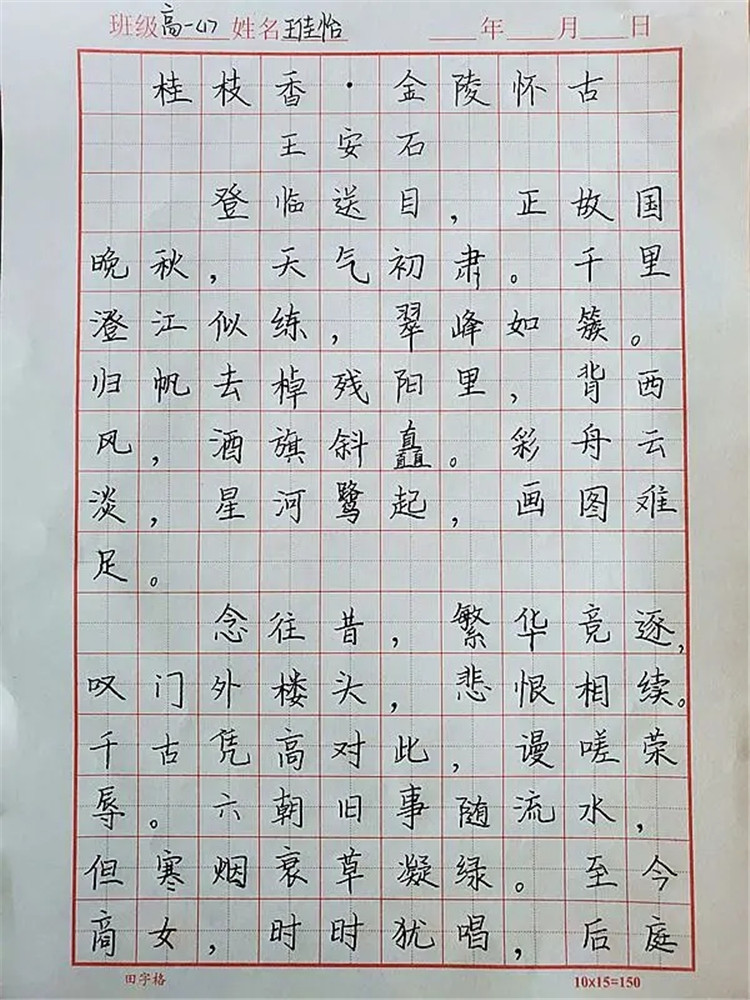 班级高一417 姓名王佳怡 年 月 日
桂枝香·金陵怀古
王安石
登临送目，正故国
晚秋，天气初肃。千里
澄江似练，翠峰如簇。
归帆去棹残阳里，背西
风，酒旗斜矗。彩舟云
淡，星河鹭起，画图难
足。
念往昔，繁华竞逐，
叹门外楼头，悲恨相续。
千古凭高对此，谩嗟荣
辱。六朝旧事随流水，
但寒烟衰草凝绿。至今
商女，时时犹唱，后庭
田字格 10×15=150